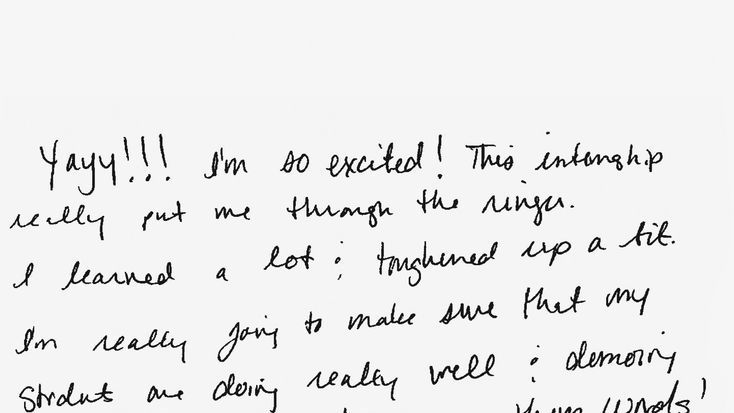 Yayy!!! I'm so excited! This internship
really put me through the ringer.
I learned a lot & toughened up a bit.
I'm really going to make sure that my
students are doing really well &
words!